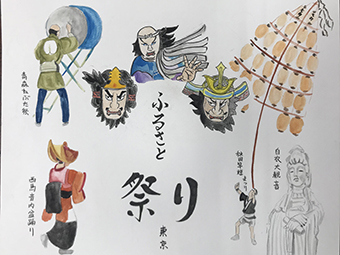 ふるさと
祭り
東京
青森ねぶた祭
西馬音内盆踊り
秋田竿燈
まつり
白衣大観音